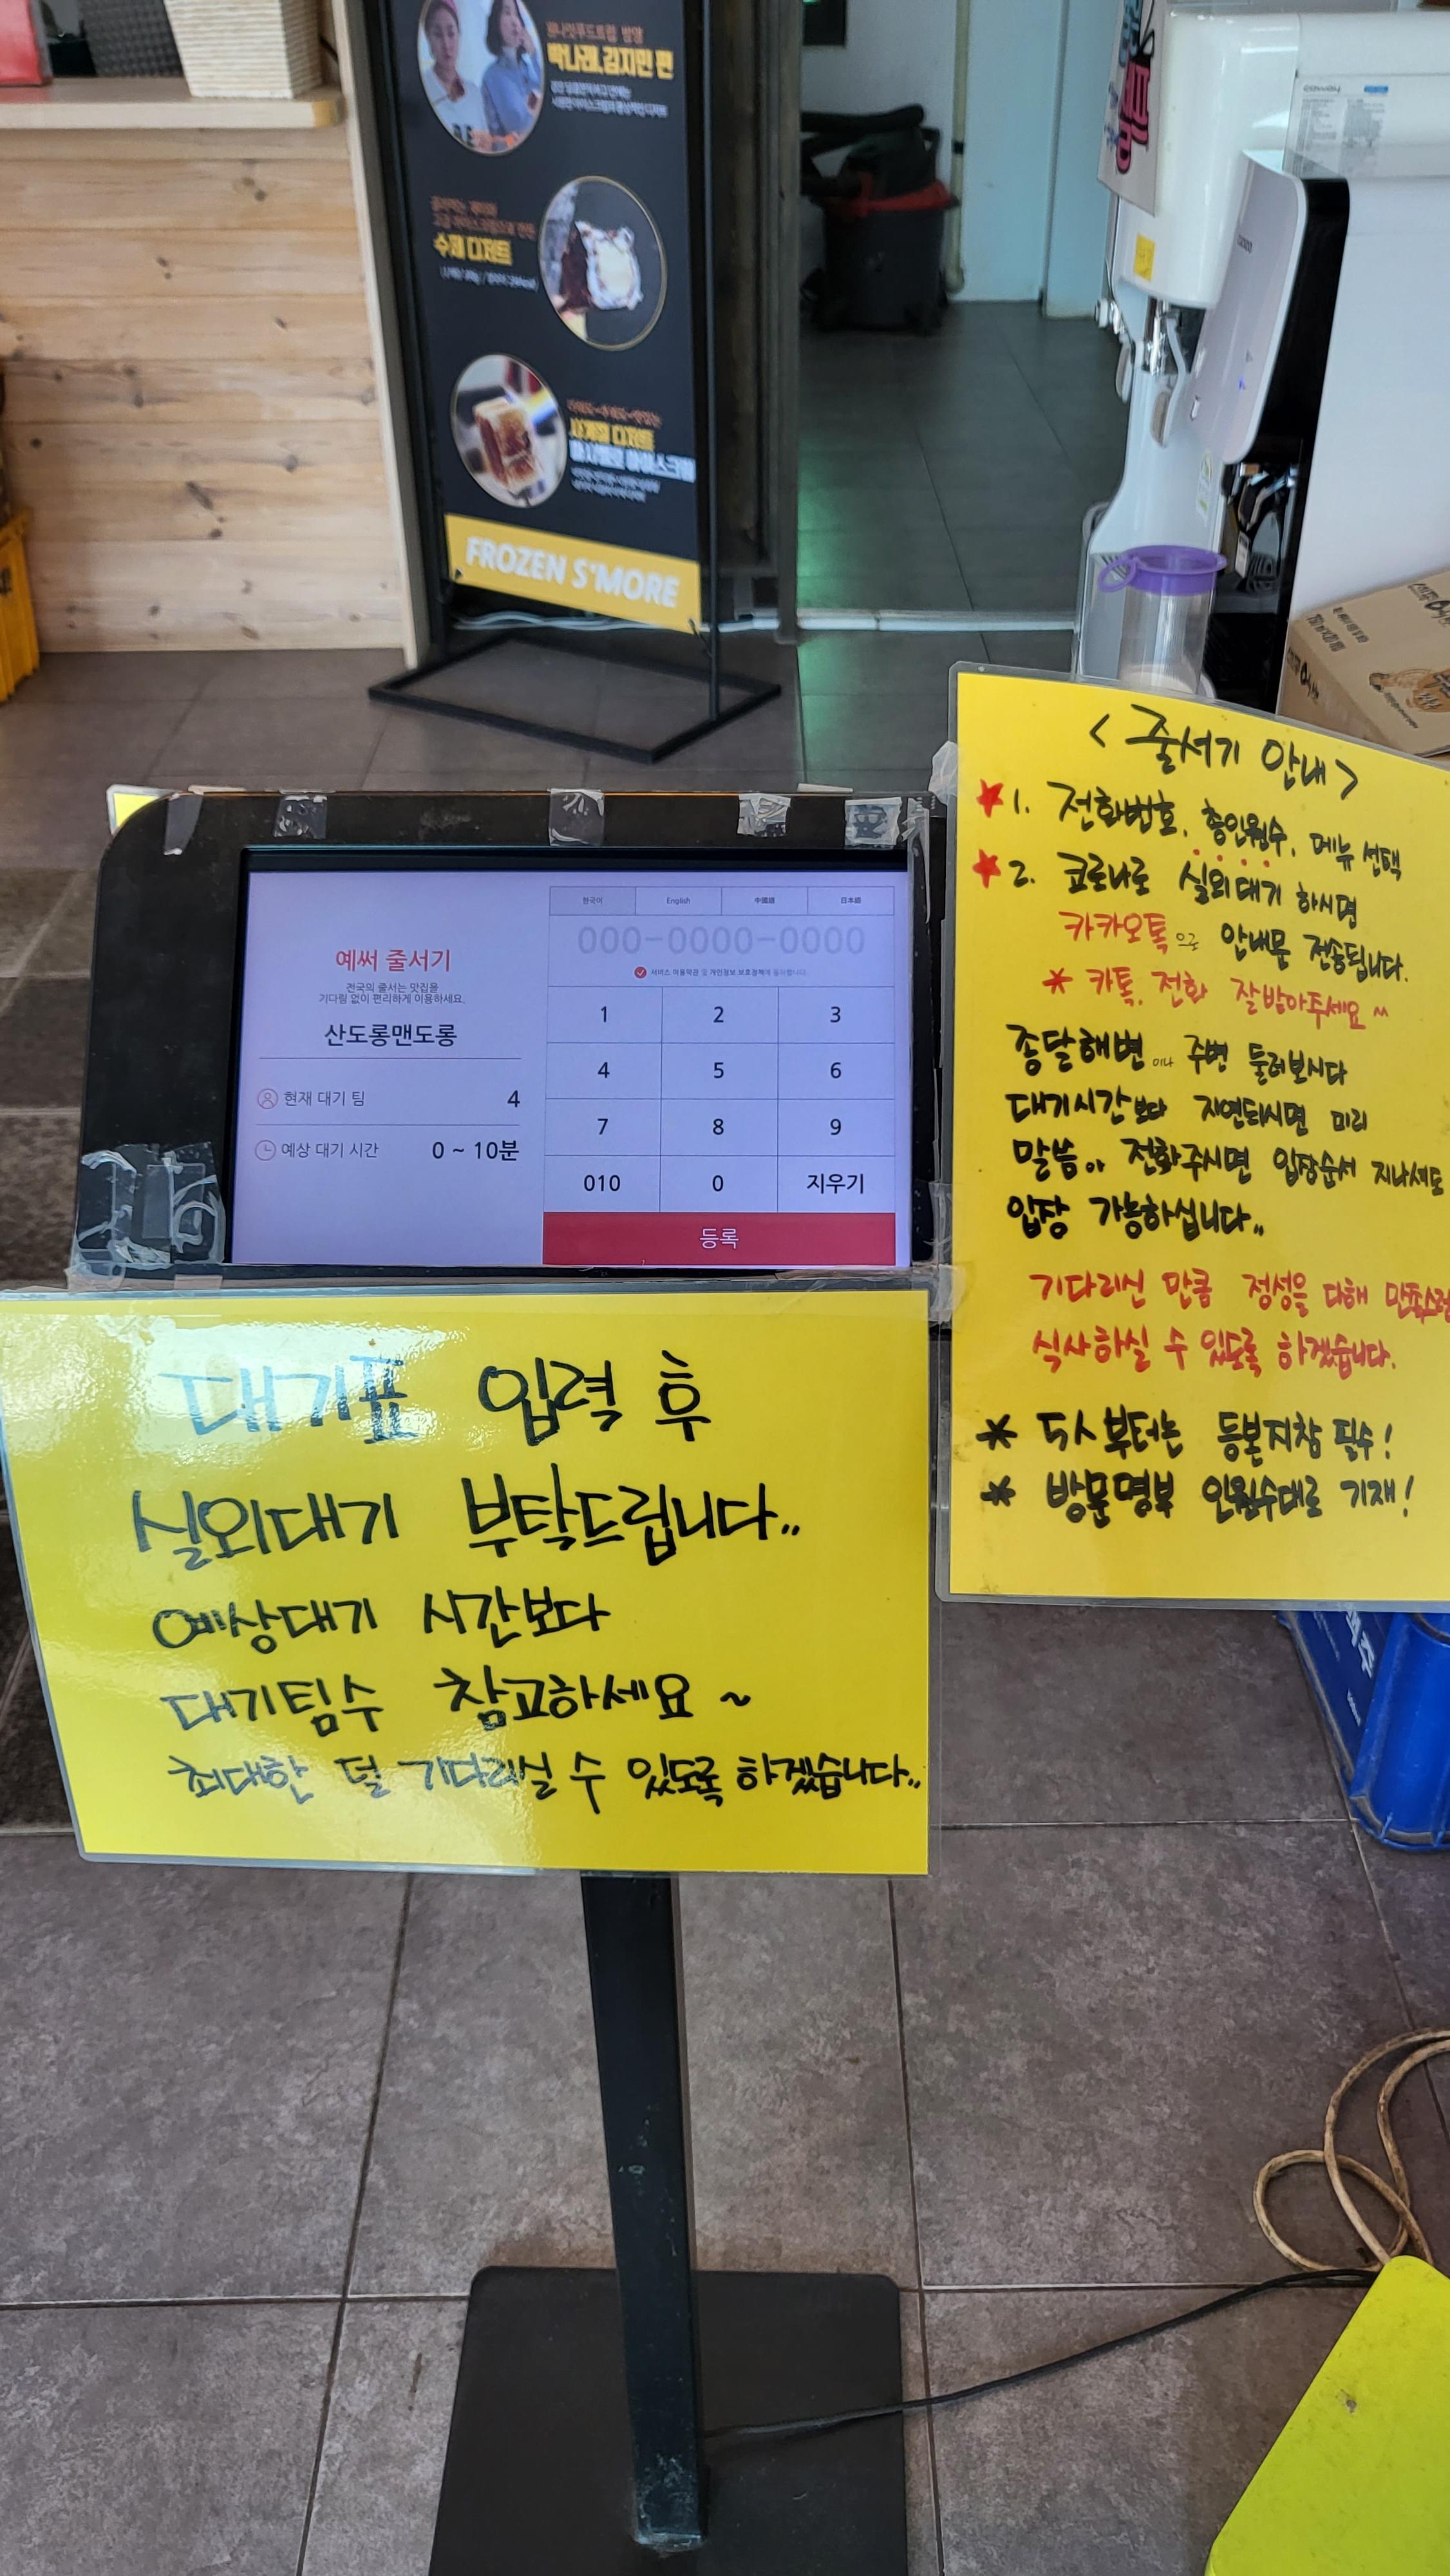 박나래, 김지민 편
수제 디저트
사계절 디저트
FROZEN S'MORE
coway
예써 줄서기
전국의 줄서는 맛집을
기다림 없이 편리하게 이용하세요.
산도롱맨도롱
현재 대기 팀 4
예상 대기 시간 0 ~ 10분
한국어 English 中國語 日本語
000-0000-0000
서비스 이용약관 및 개인정보 보호정책에 동의합니다.
1 2 3
4 5 6
7 8 9
010 0 지우기
등록
< 줄서기 안내 >
★ 1. 전화번호, 총인원수, 메뉴 선택
★ 2. 코로나로 실외대기 하시면
카카오톡으로 안내문 전송됩니다.
* 카톡, 전화 잘받아주세요 ^^
종달해변이나 주변 둘러보시다
대기시간보다 지연되시면 미리
말씀.. 전화주시면 입장순서 지나셔도
입장 가능하십니다..
기다리신 만큼 정성을 다해 만족스럽
식사하실 수 있도록 하겠습니다.
* 5人부터는 등본지참 필수!
* 방문명부 인원수대로 기재!
대기표 입력 후
실외대기 부탁드립니다..
예상대기 시간보다
대기팀수 참고하세요 ~
최대한 덜 기다리실 수 있도록 하겠습니다..